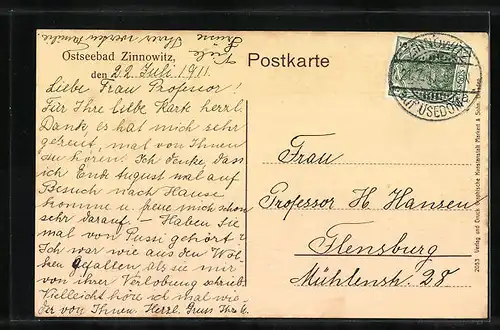 Viele
Grüsse Ihrer werten Familie
Ostseebad Zinnowitz,
den 22. Juli 1911.
Postkarte
Liebe Frau Professor!
Für Ihre liebe Karte herzl.
Dank, es hat mich sehr
gefreut, mal von Ihnen
zu hören. Ich denke, dass
ich Ende August mal auf
Besuch nach Hause
komme u. freue mich schon
sehr darauf. – Haben Sie
mal von Pussi gehört?
Ich war wie aus den Wol-
ken gefallen, als sie mir
von ihrer Verlobung schrieb.
Vielleicht höre ich mal wie-
der von Ihnen. Herzl. Gruss Ihre
Frau
Professor H. Hansen
Flensburg
Mühlenstr. 28
ZINNOWITZ
USEDOM
2053 Verlag und Druck